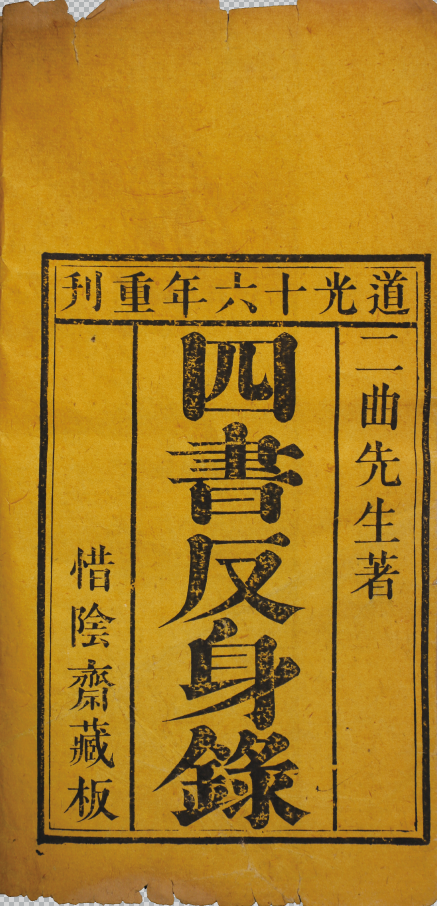 道光十六年重刊
二曲先生著
四書反身錄
惜陰齋藏板